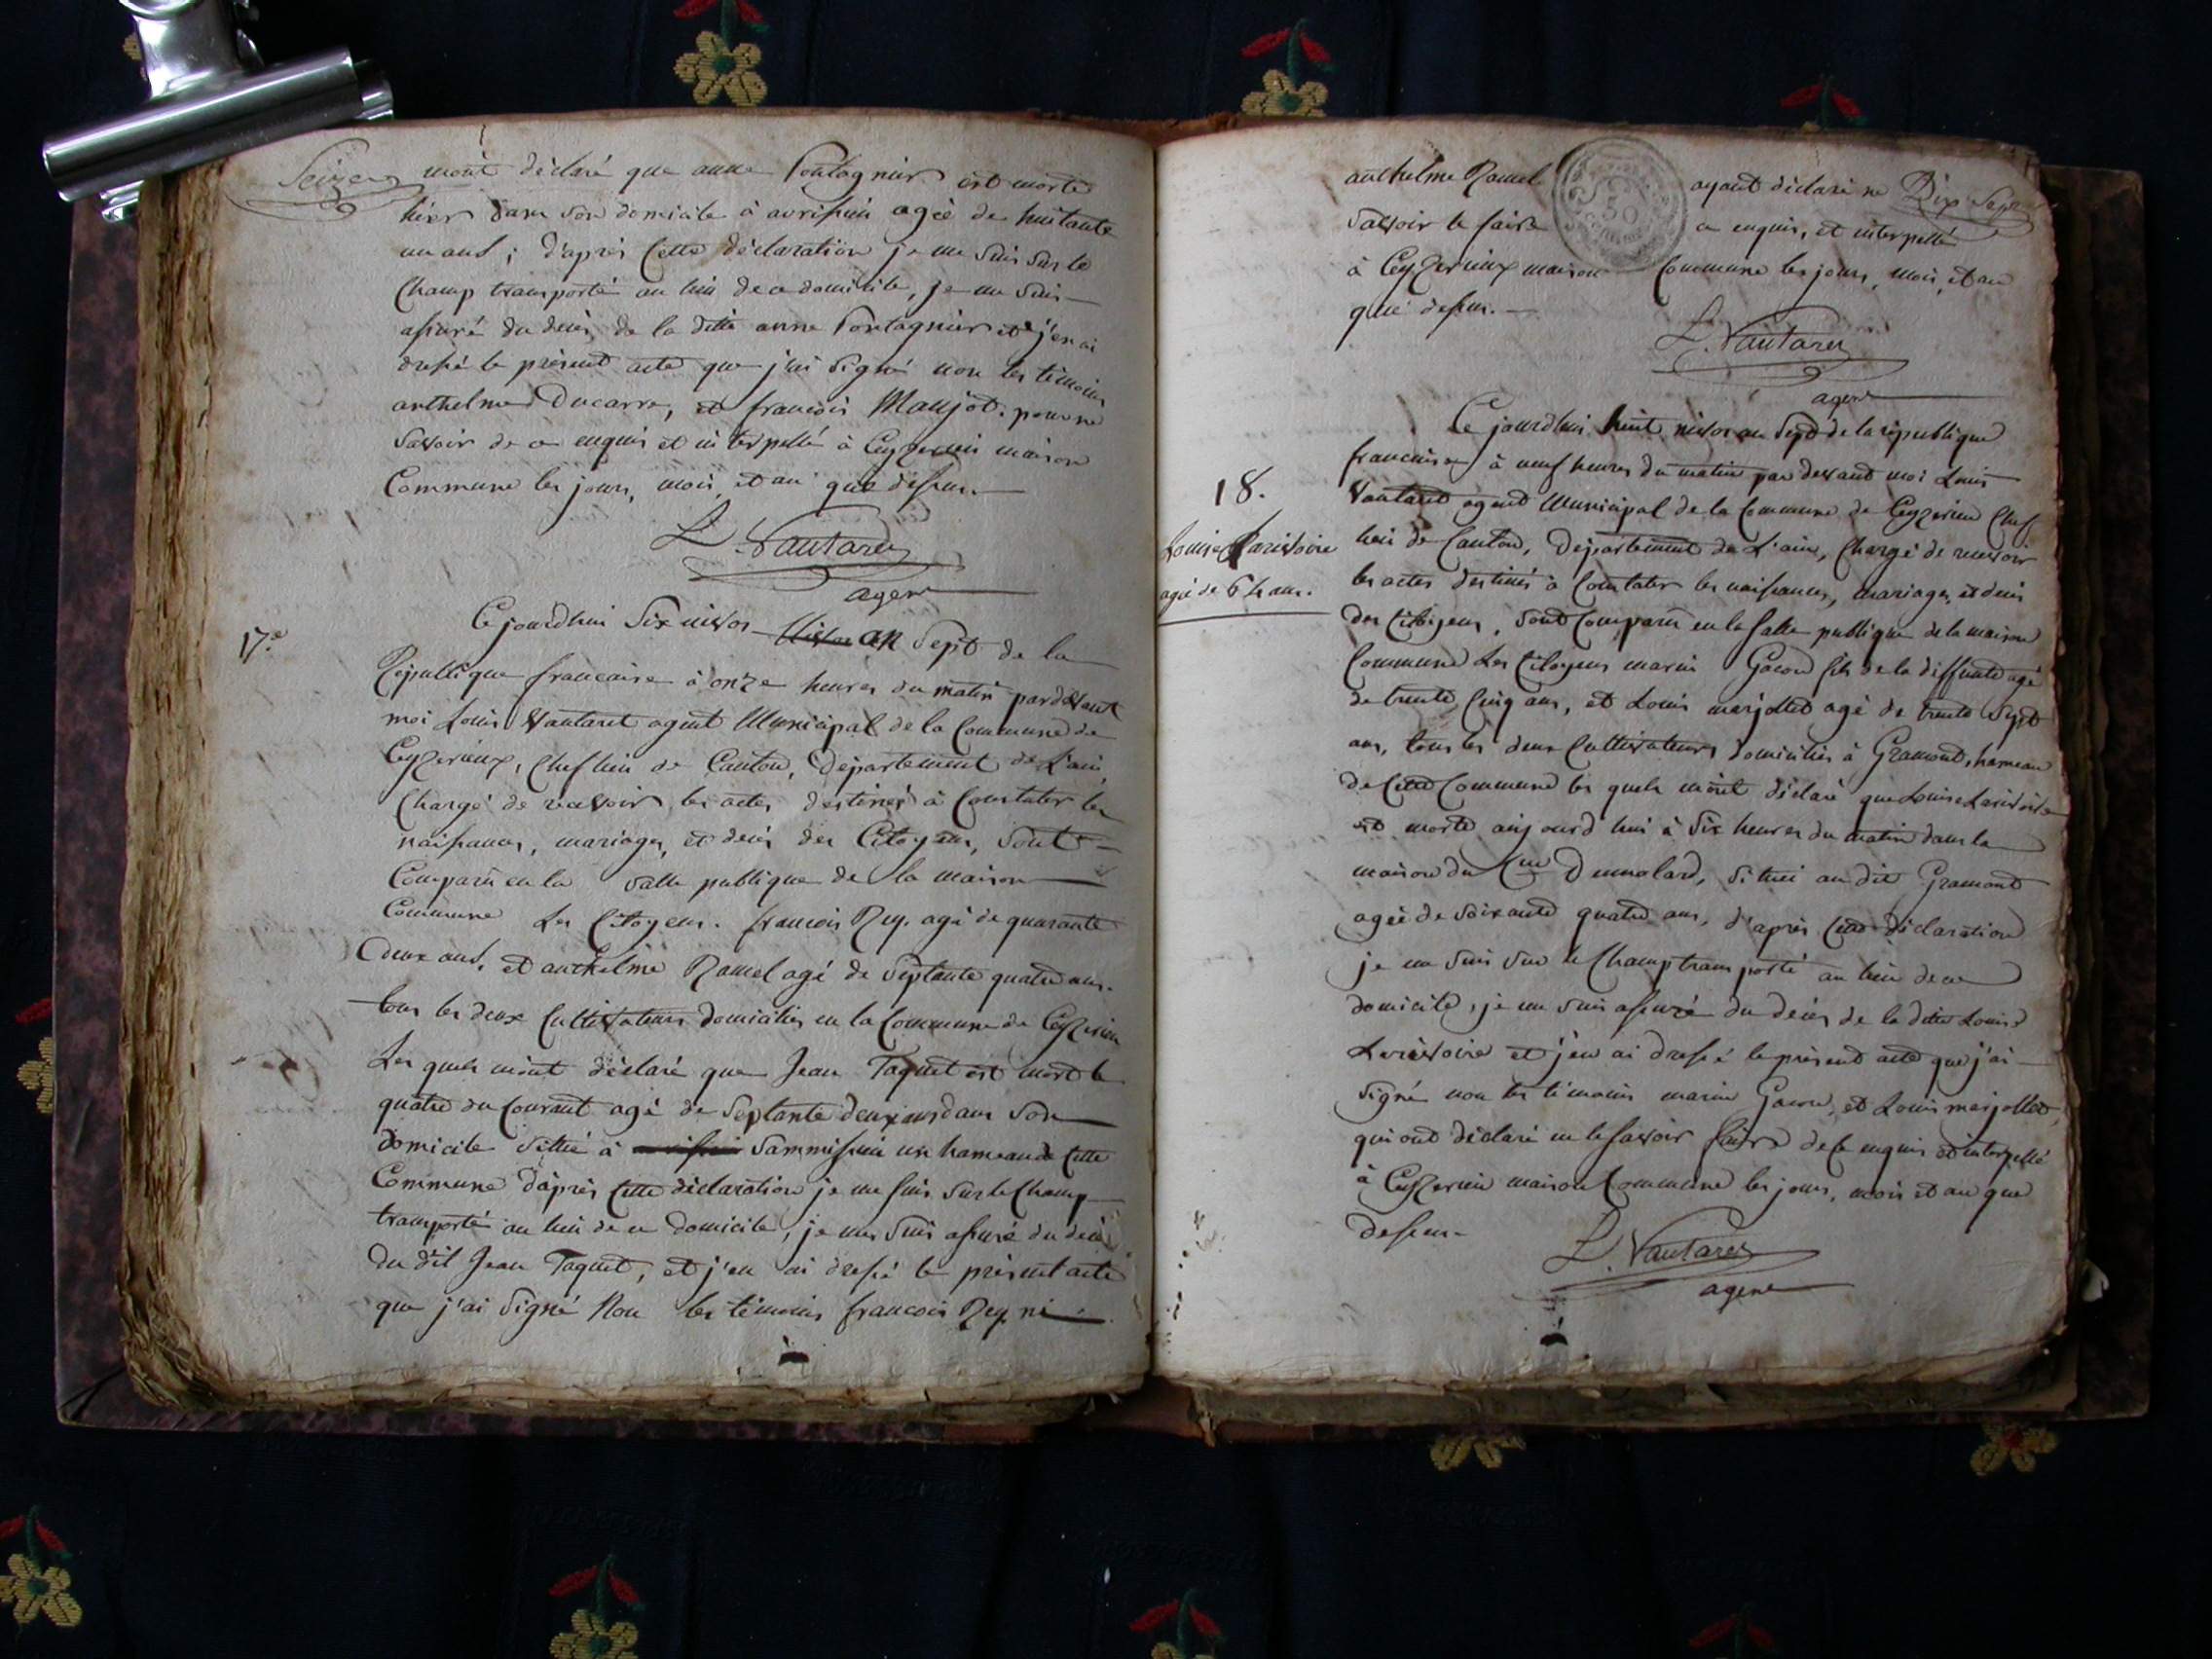 Seize
mont déclaré que anne Pontagnier est morte
hier dans son domicile à avrissieu agée de huitante
un ans ; d'après Cette déclaration je me suis sur le
Champ transporté au lieu de ce domicile, je me suis
assuré du decés de la ditte anne Pontagnier et j'en ai
dressé le présent acte que j'ai signé non les témoins
anthelme Ducarre, et francois Manjot. pour ne
savoir de ce enquis et interpellé à Ceyzerieu maison
Commune les jours, mois, et an que dessus.
L. Vautaret
agent
17.e
Cejourdhui Six nivos an Sept de la
République francaise à onze heures du matin pardevant
moi Louis Vautaret agent Municipal de la Commune de
Ceyzerieux, Cheflieu de Canton, département de L'ain,
Chargé de recevoir les actes destinés à Constater les
naissances, mariages, et decés des Citoyens, sont
Comparu en la salle publique de la maison
Commune Les Citoyens. francois Rey. agé de quarante
deux ans, et anthelme Ramel agé de septante quatre ans.
tous les deux Cultivateurs domiciliés en la Commune de Ceyzerieu
Les quels mont déclaré que Jean Taquet est mort le
quatre du Courant agé de septante deux ans dans son
domicile situé à Sammissieu un hameau de Cette
Commune d'après Cette déclaration je me suis sur le Champ
transporté au lieu de ce domicile, je me suis assuré du decés
du dit Jean Taquet, et j'en ai dressé le présent acte
que j'ai signé Non les témoins francois Rey. ni
anthelme Ramel ayant déclaré ne Dix Sept
savoir le faire ce enquis, et interpellé
à Ceyzerieux maison Commune les jours, mois, et an
que dessus.
L. Vautaret
agent
18.
Louise Laristoire
agée de 64 ans.
Cejourdhui huit nivos an Sept de la république
francaise à neuf heures du matin par devant moi Louis
Vautaret agent Municipal de la Commune de Ceyzerieu Chef
lieu de Canton, département de L'ain, Chargé de recevoir
les actes destinés à Constater les naissances, mariages, et decés
des Citoyens, sont Comparu en la salle publique de la maison
Commune Les Citoyens marin Gacon fils de la deffunte agé
de trente Cinq ans, et Louis marjollet agé de trente Sept
ans, tous les deux Cultivateurs domiciliés à Gramont, hameau
de Cette Commune les quels mont déclaré que Louise Laristoire
est morte aujourd hui à six heures du matin dans la
maison du Cen Dumolard, situé au dit Gramont
agée de soixante quatre ans, d'après Cette déclaration
je me suis sur le Champ transporté au lieu de ce
domicile, je me suis assuré du decés de la ditte Louise
Laristoire et j'en ai dressé le présent acte que j'ai
signé non les témoins marin Gacon, et Louis marjollet
qui ont déclaré ne le savoir faire de Ce enquis et interpellé
à Ceyzerieu maison Commune les jours, mois et an que
dessus.
L. Vautaret
agent